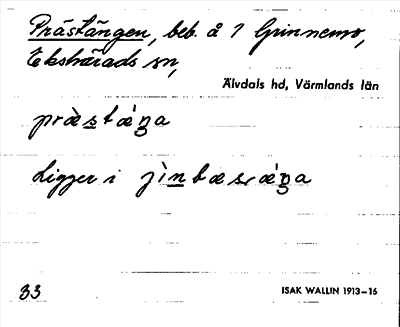 Prästängen, beb. å 7 Grinnemo,
Ekshärads sn,
Älvdals hd, Värmlands län
præ̀stæ̀ŋa
Ligger i
33
ISAK WALLIN 1913–16